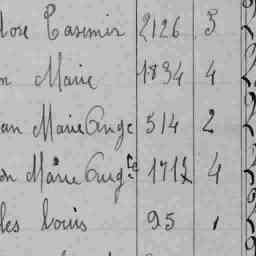 Casimir 2126 3
Marie 1834 4
Marie Ange 514 2
Marie Aug te 1712 4
les Louis 95 1